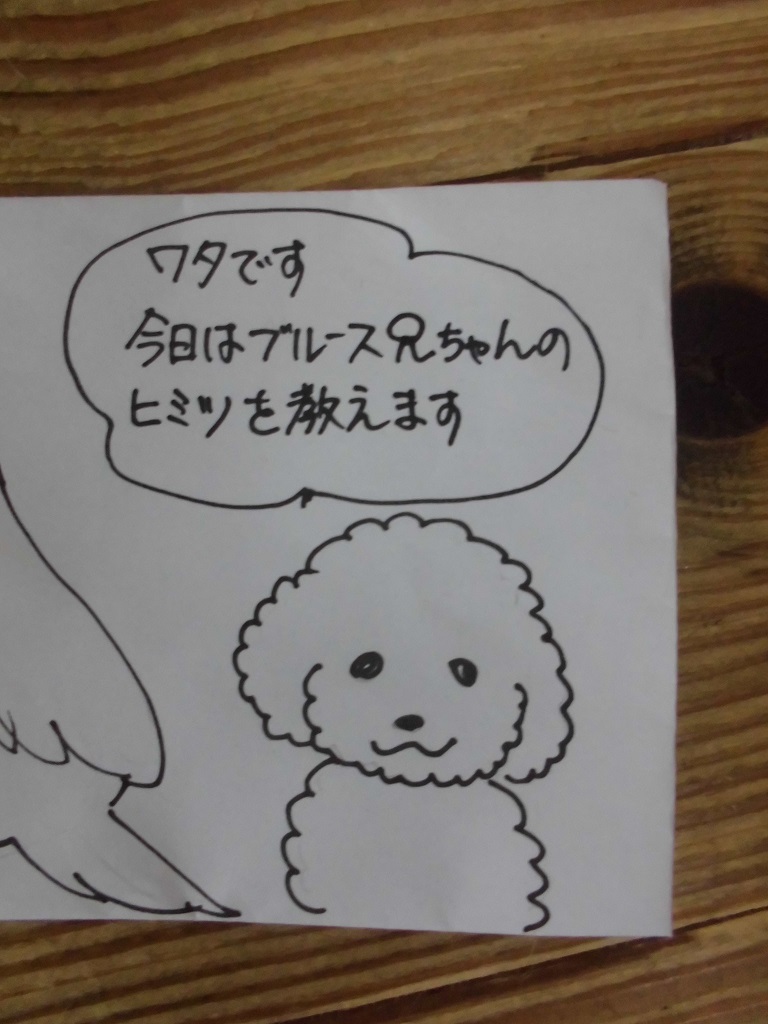 ワタです
今日はブルース兄ちゃんの
ヒミツを教えます